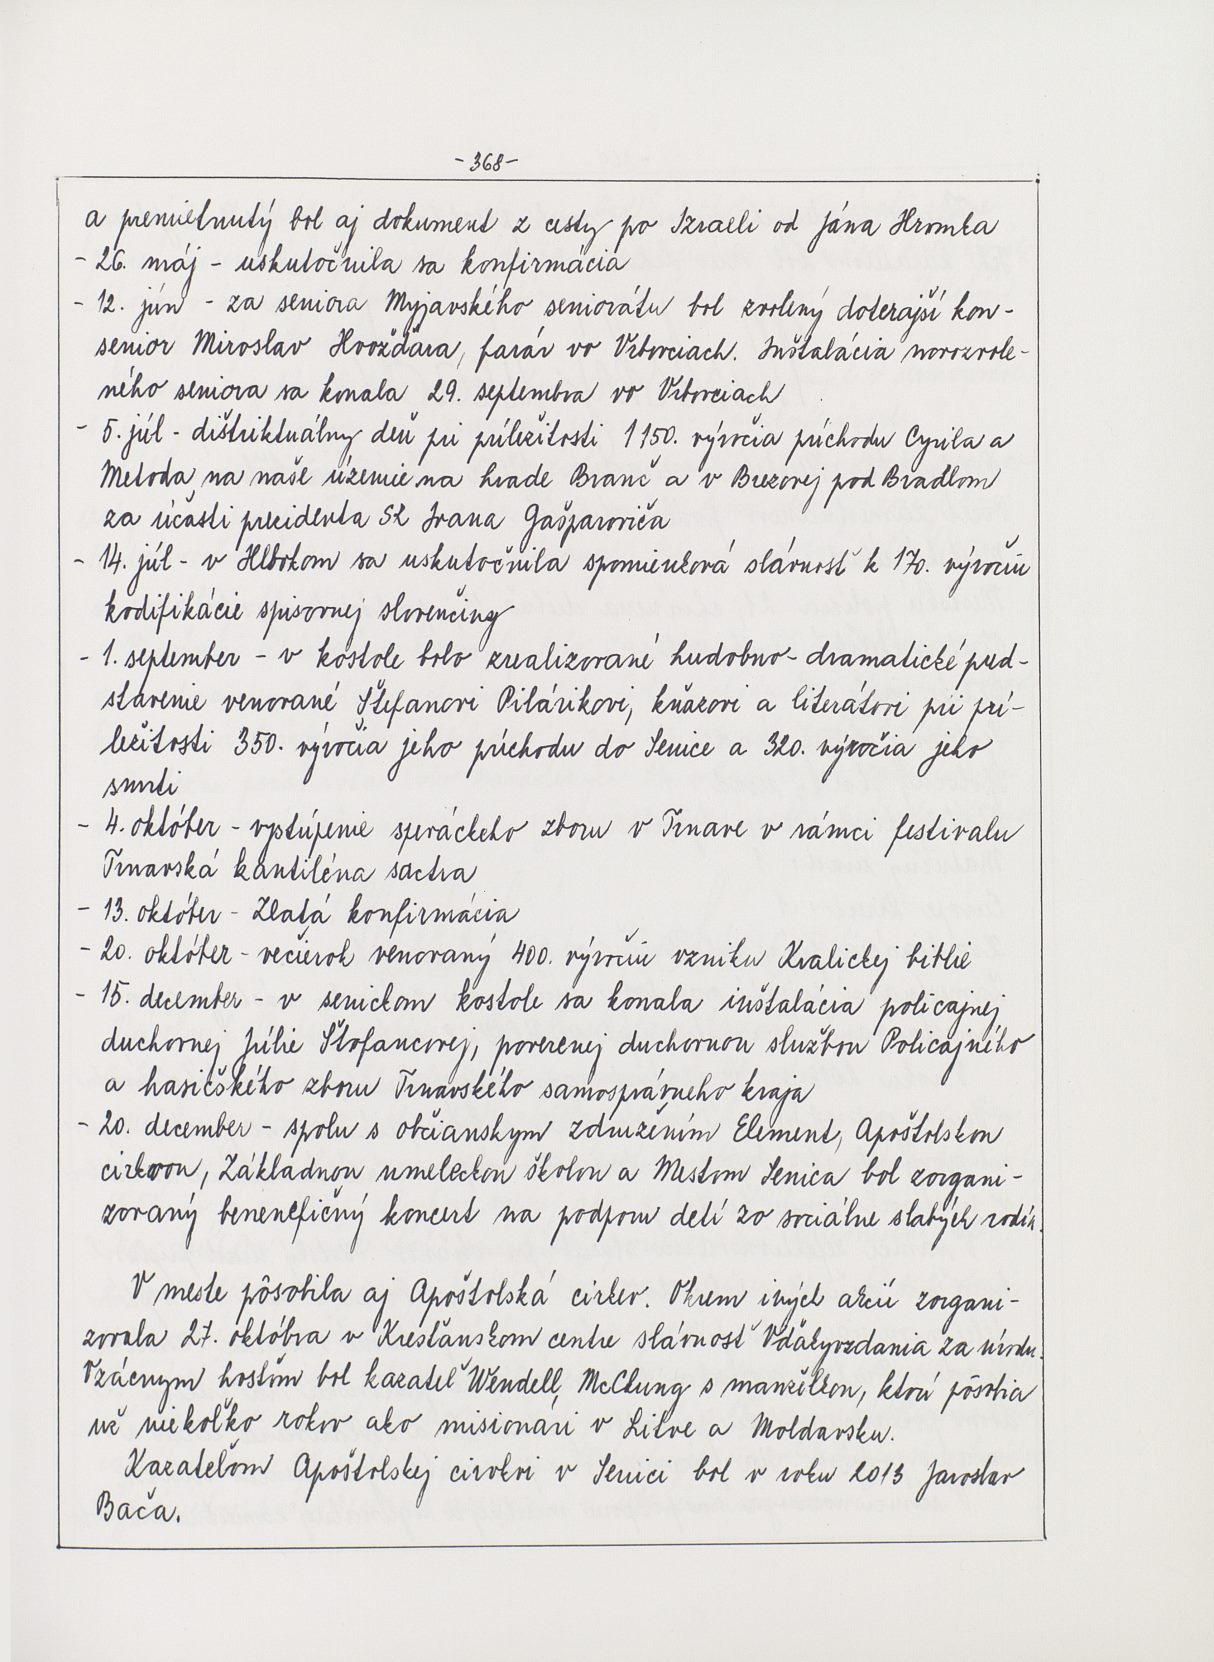 - 368 -
a premietnutý bol aj dokument z cesty po Izraeli od Jána Hromka
- 26. máj - uskutočnila sa konfirmácia
- 12. jún - za seniora Myjavského seniorátu bol zvolený doterajší kon-
senior Miroslav Hvožďara, farár vo Vrbovciach. Inštalácia novozvole-
ného seniora sa konala 29. septembra vo Vrbovciach
- 5. júl - dištriktuálny deň pri príležitosti 1150. výročia príchodu Cyrila a
Metoda na naše územie na hrade Branč a v Brezovej pod Bradlom
za účasti prezidenta SR Ivana Gašparoviča
- 14. júl - v Hlbokom sa uskutočnila spomienková slávnosť k 170. výročiu
kodifikácie spisovnej slovenčiny
- 1. september - v kostole bolo zrealizované hudobno-dramatické pred-
stavenie venované Štefanovi Pilárikovi, kňazovi a literátovi pri prí-
ležitosti 350. výročia jeho príchodu do Senice a 320. výročia jeho
smrti
- 4. október - vystúpenie speváckeho zboru v Trnave v rámci festivalu
Trnavská kantiléna sactra
- 13. október - Zlatá konfirmácia
- 20. október - večierok venovaný 400. výročiu vzniku Kralickej biblie
- 15. december - v senickom kostole sa konala inštalácia policajnej
duchovnej Júlie Štofancovej, poverenej duchovnou službou Policajného
a hasičského zboru Trnavského samosprávneho kraja
- 20. december - spolu s občianskym združením Element, Apoštolskou
cirkvou, Základnou umeleckou školou a Mestom Senica bol zorgani-
zovaný benenefičný koncert na podporu detí zo sociálne slabých rodín.
V meste pôsobila aj Apoštolská cirkev. Okrem iných akcií zorgani-
zovala 27. októbra v Kresťanskom centre slávnosť Vďakyvzdania za úrodu.
Vzácnym hosťom bol kazateľ Wendell McClung s manželkou, ktorí pôsobia
už niekoľko rokov ako misionári v Litve a Moldavsku.
Kazateľom Apoštolskej cirvkvi v Senici bol v roku 2013 Jaroslav
Bača.